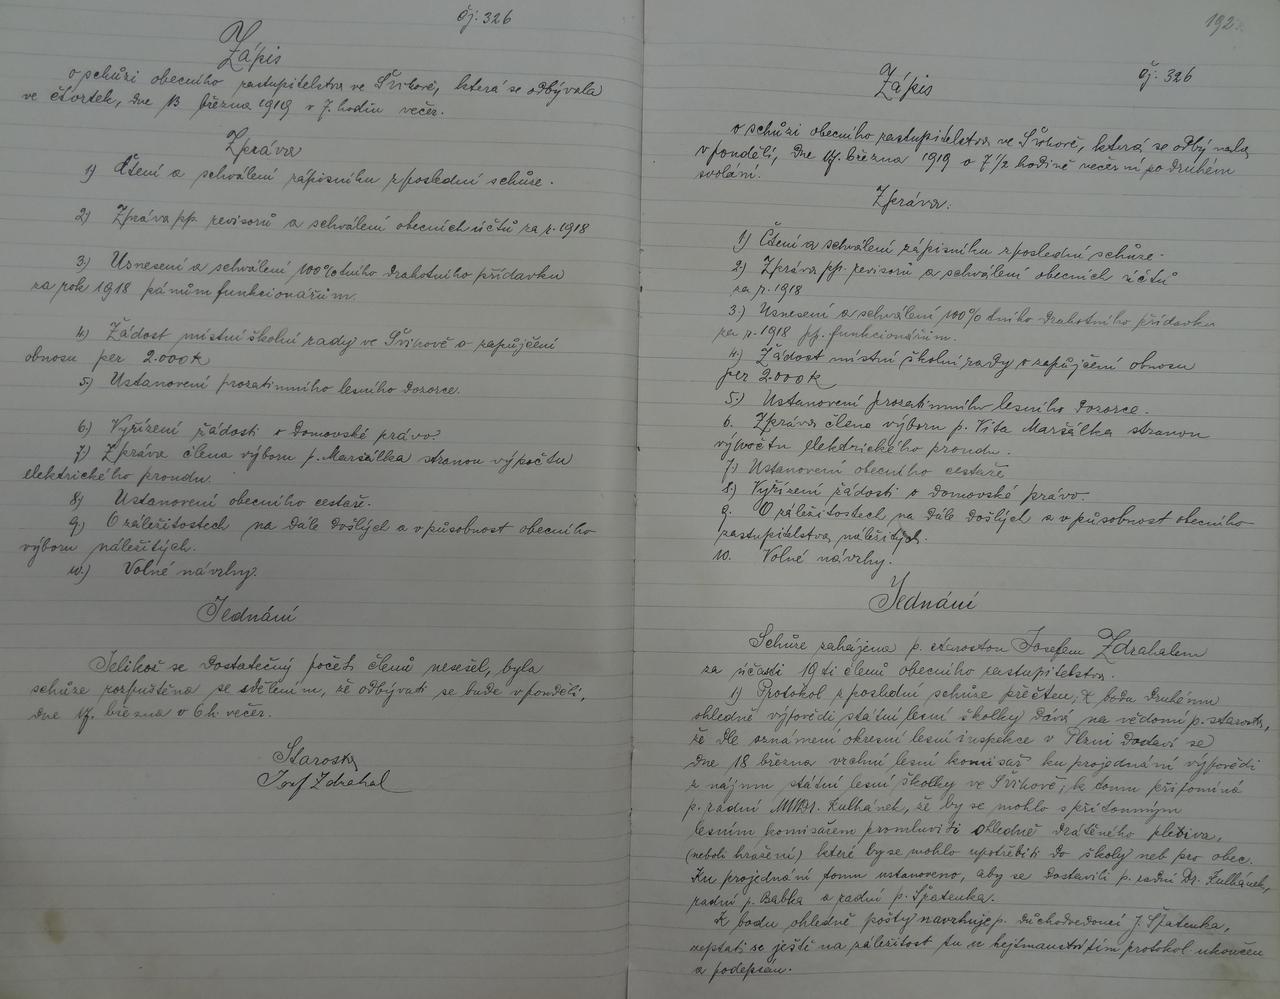 čj. 326
Zápis
o schůzi obecního zastupitelstva ve Švihově, která se odbývala
ve čtvrtek, dne 13 března 1919 v 7. hodin večer.
Zpráva
1) Čtení a schválení zápisníku z poslední schůze.
2) Zpráva pp. revisorů a schválení obecních účtů za r. 1918
3) Usnesení a schválení 100%tního drahotního přídavku
za rok 1918 pánům funkcionářům.
4) Žádost místní školní rady ve Švihově o zapůjčení
obnosu per 2.000 K
5) Ustanovení prozatimního lesního dozorce.
6) Vyřízení žádosti o domovské právo.
7) Zpráva člena výboru p. Maršálka stranou výpočtu
elektrického proudu.
8) Ustanovení obecního cestaře.
9) O záležitostech na dále došlých a v působnost obecního
výboru náležitých.
10.) Volné návrhy.
Jednání
Jelikož se dostatečný počet členů nesešel, byla
schůze rozpuštěna se sdělením, že odbývati se bude v pondělí,
dne 17. března v 6 h. večer.
Starosta
Josef Zdrahal
192
čj. 326
Zápis
o schůzi obecního zastupitelstva ve Švihově, která se odbývala
v pondělí, dne 17. března 1919 o 7 1/2 hodině večerní po druhém
svolání.
Zpráva:
1) Čtení a schválení zápisníku z poslední schůze.
2) Zpráva pp. revisorů a schválení obecních účtů
za r. 1918
3.) Usnesení a schválení 100% tního drahotního přídavku
za r. 1918 pp. funkcionářům.
4.) Žádost místní školní rady o zapůjčení obnosu
per 2.000 K
5.) Ustanovení prozatimního lesního dozorce.
6. Zpráva člena výboru p. Víta Maršálka stranou
výpočtu elektrického proudu.
7.) Ustanovení obecního cestaře
8.) Vyřízení žádosti o domovské právo.
9. O záležitostech na dále došlých a v působnost obecního
zastupitelstva náležitých.
10. Volné návrhy.
Jednání
Schůze zahájena p. starostou Josefem Zdrahalem
za účasti 19ti členů obecního zastupitelstva.
1) Protokol z poslední schůze přečten; k bodu druhému
ohledně výpovědi státní lesní školky dává na vědomí p. starosta,
že dle oznámení okresní lesní inspekce v Plzni dostaví se
dne 18 března vrchní lesní komisař ku projednání výpovědi
z nájmu státní lesní školky ve Švihově; k tomu připomíná
p. radní MUDr. Kulhánek, že by se mohlo s přítomným
lesním komisařem promluviti ohledně drátěného pletiva,
(neboli hražení) které by se mohlo upotřebiti do školy neb pro obec.
Ku projednání tomu ustanoveno, aby se dostavili p. radní Dr. Kulhánek,
radní p. Babka a radní p. Špatenka.
K bodu ohledně pošty navrhuje p. důchodvedoucí J. Špatenka,
zeptati se ještě na záležitost tu u hejtmanství tím protokol ukončen
a podepsán.